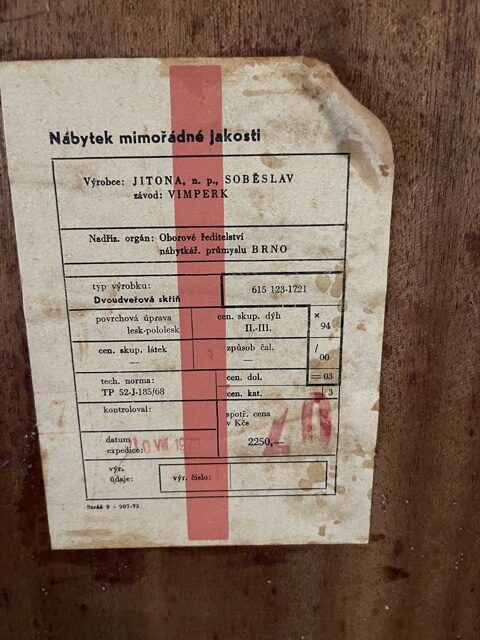 Nábytek mimořádné jakosti
Výrobce: JITONA, n. p., SOBĚSLAV
závod: VIMPERK
Nadříz. orgán: Oborové ředitelství
nábytkář. průmyslu BRNO
typ výrobku:
Dvoudveřová skříň
615 123-1721
povrchová úprava
lesk-pololesk
cen. skup. dýh
II.-III.
×
94
cen. skup. látek
—
způsob čal.
—
/
00
tech. norma:
TP 52-J-185/68
cen. dol.
= 03
cen. kat.
3
kontroloval:
spotř. cena
v Kčs
2250,—
40
datum
expedice:
10 VIII. 1973
výr.
údaje:
výr. číslo:
9 - 907-72